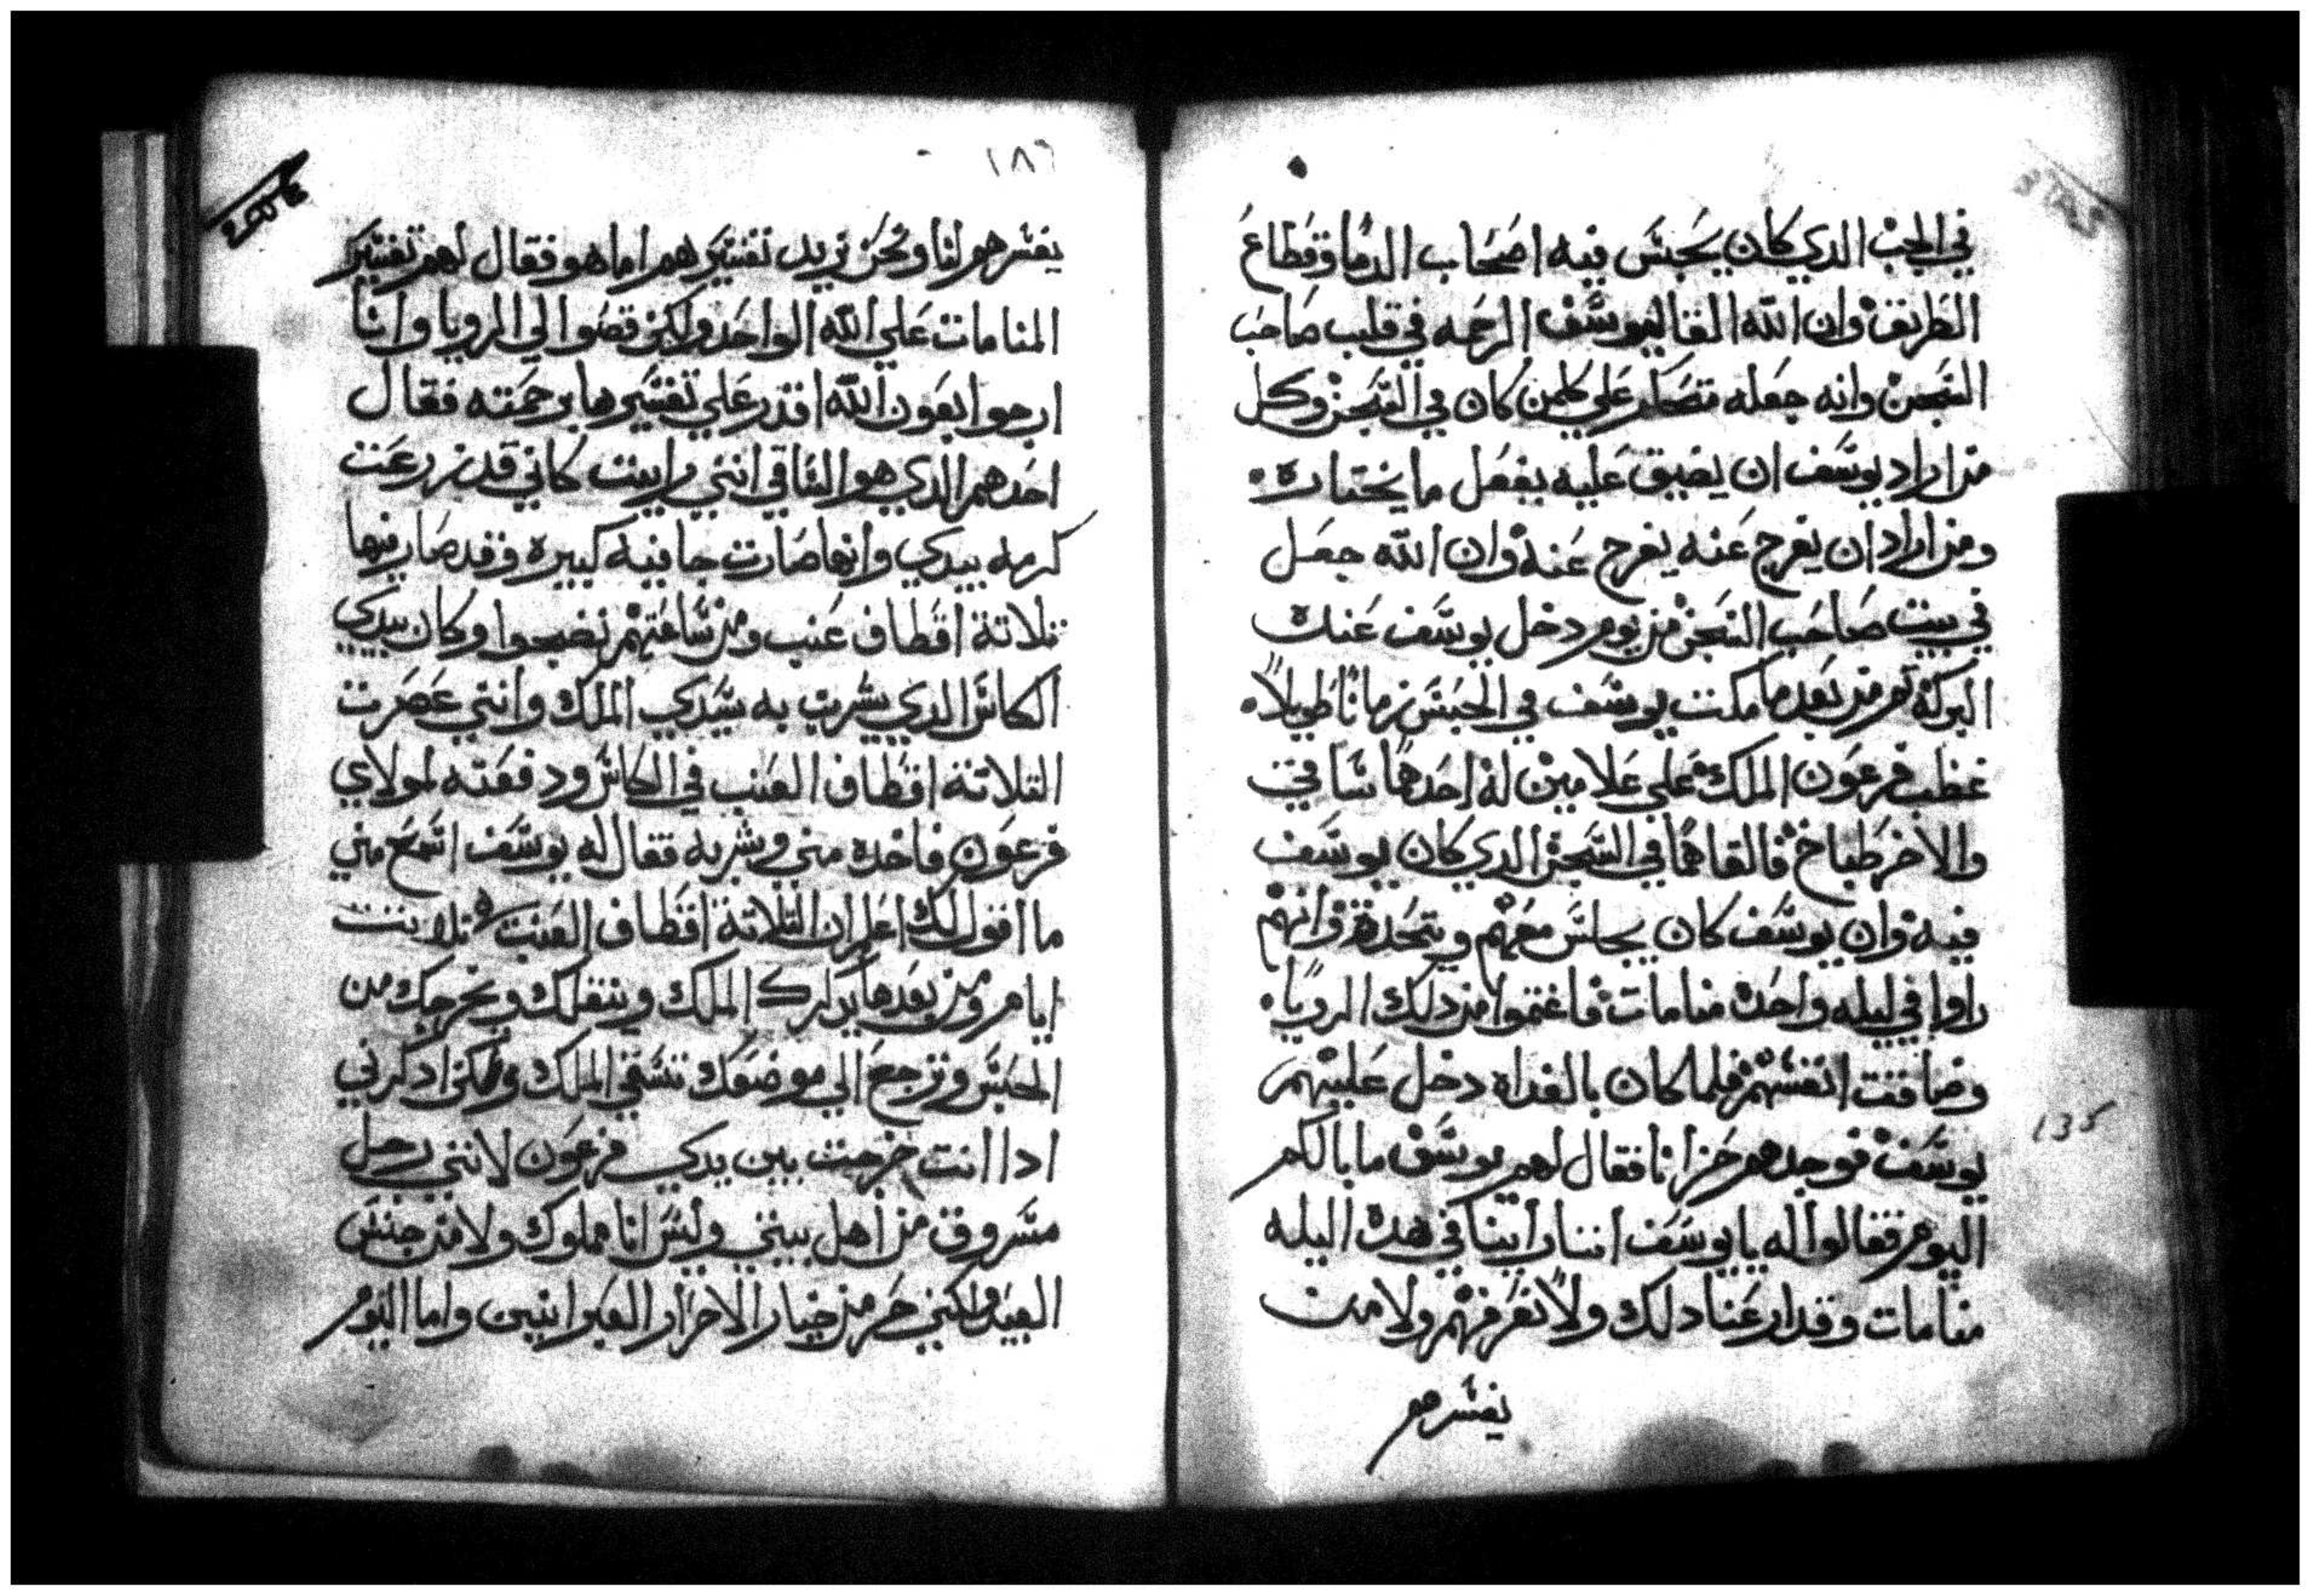 في الجب الدي كان يحبس فيه اصحاب الدما وقطاع
الطريق وان الله القا ليوسف الرحمه في قلب صاحب
السجن وانه جعله متصلم علي كلمن كان في السجن وكل
من اراد يوسف ان يضيق عليه يفعل ما يختاره
ومن اراد ان يفرج عنه يفرج عنه وان الله جعل
في بيت صاحب السجن من يوم دخل يوسف عنده
البركة تم من بعد ما مكت يوسف في الحبس زمانا طويلا
غظب فرعون الملك علي غلامين له احدهما ساقي
والاخر طباخ فالقاهما في السجن الدي كان يوسف
فيه وان يوسف كان يجالس معهم ويتحدت وانهم
راوا في ليله واحده منامات فاغتموا من دلك الرويا
وضاقت انفسهم فلما كان بالغداه دخل عليهم
يوسف فوجدهم حزانا فقال لهم يوسف ما بالكم
اليوم فقالوا له يا يوسف اننا راينا في هده اليله
منامات وقد ارعنا دلك ولا نعرفهم ولا من
يفسرهم
١٨٦
يفسرهم لنا ونحن نريد تفسيرهم اما هو فقال لهم تفسير
المنامات علي الله الواحد ولكن قصوا الي الرويا وانا
ارجوا بعون الله اقدر علي تفسيرها برحمته فقال
احدهم الدي هو الساقي انني رايت كاني قد زرعت
كرمه بيدي وانها صارت جافنيه كبيره وقد صار فيها
تلاتة اقطاف عنب ومن ساعتهم نضجوا وكان بيدي
الكاس الدي يشرب به سيدي الملك وانني عصرت
التلاتة اقطاف العنب في الكاس ودفعته لمولاي
فرعون فاخده مني وشربه فقال له يوسف اسمع مني
ما اقول لك اعلم ان التلاتة اقطاف العنب تلاتت
ايام ومن بعدها يدارك الملك وينقلك ويخرجك من
الحبس وترجع الي موضعك تسقي الملك ولكن ادكرني
ادا انت خرجت بين يدي فرعون لانني رجل
مسروق من اهل بيتي وليس انا مملوك ولا من جنس
العبيد ولكني حر من خيار الاحرار العبرانيين واما اليوم
135